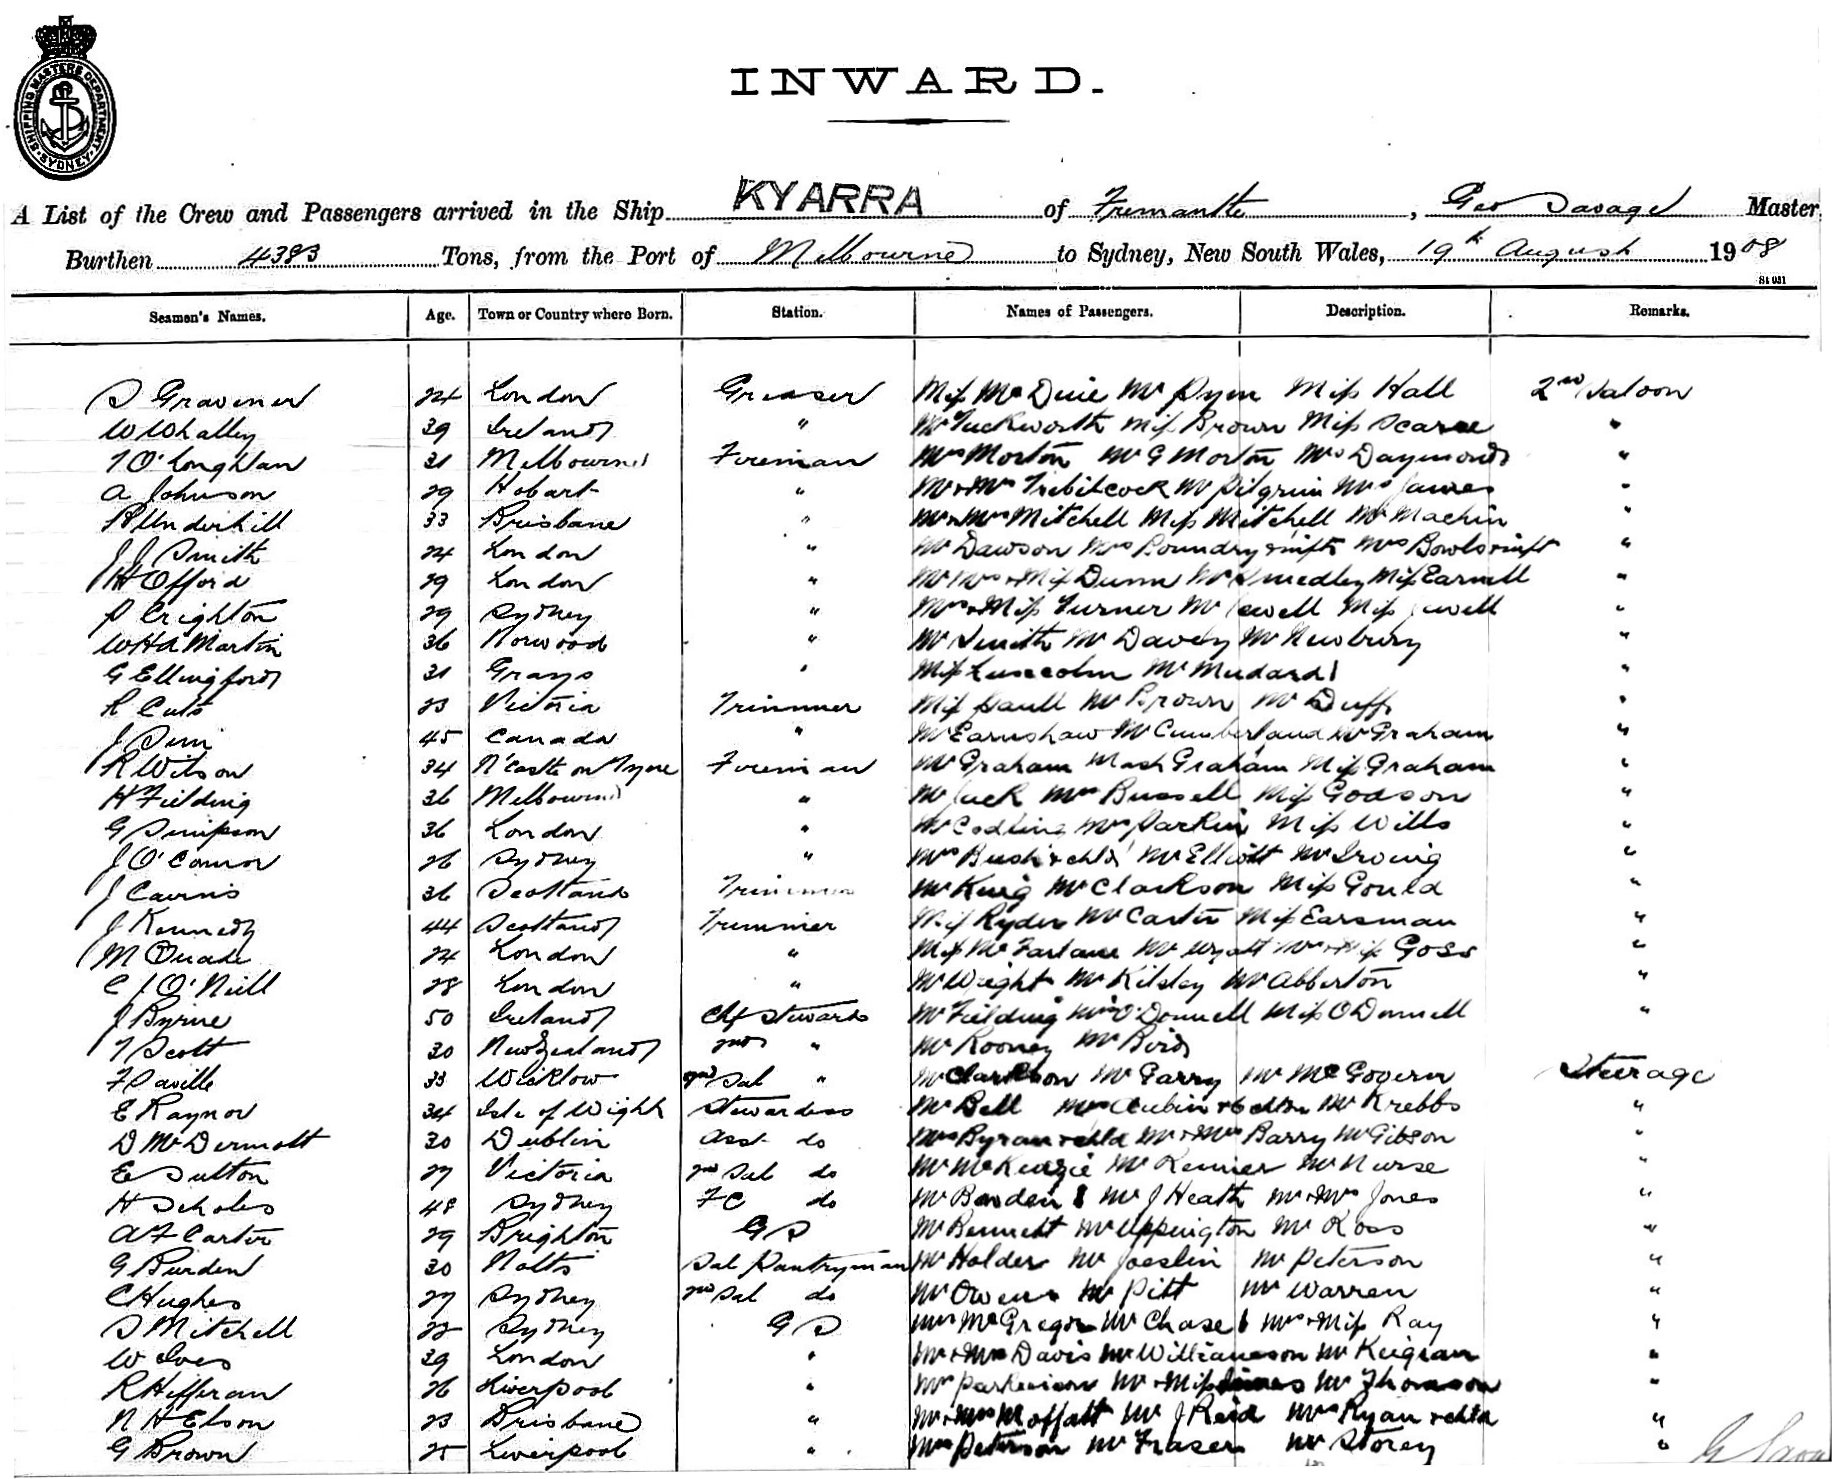 SHIPPING MASTERS DEPARTMENT · SYDNEY ·
INWARD.
A List of the Crew and Passengers arrived in the Ship KYARRA of Fremantle, Geo Savage Master
Burthen 4383 Tons, from the Port of Melbourne to Sydney, New South Wales, 19th August 1908
St 031
Seamen's Names. Age. Town or Country where Born. Station. Names of Passengers. Description. Remarks.
S Gravener 24 London Greaser Miss McDuie Mr Pym Miss Hall 2nd Saloon
W Whalley 39 Ireland " Mr Tuckworth Miss Brown Miss Scarse "
T O'Loughlan 31 Melbourne Foreman Mrs Morton Mr G Morton Mrs Daymond "
A Johnson 29 Hobart " Mr & Mrs Trebilcock Mr Pilgrim Mrs James "
R Underhill 33 Brisbane " Mr & Mrs Mitchell Miss Mitchell Mr Machin "
J J Smith 24 London " Mr Dawson Mrs Roundry & inft Mrs Bowls & inft "
H Offord 29 London " Mr Mrs & Miss Dunn Mr Smedley Miss Earnell "
P Crighton 29 Sydney " Mrs & Miss Turner Mr Jewell Miss Jewell "
W H A Martin 36 Norwood " Mr Smith Mr Davey Mr Newbury "
G Ellingford 31 Grays " Miss Luscolm Mr Mudard "
R Cuts 23 Victoria Trimmer Miss Saull Mr Brown Mr Duff "
J Sim 45 Canada " Mr Earnshaw Mr Cumberland Mr Graham "
R Wilson 34 N'Castle on Tyne Foreman Mr Graham Mast Graham Miss Graham "
H Fielding 36 Melbourne " Mr Jack Mrs Bussell Miss Godson "
G Simpson 36 London " Mr Codling Mrs Parkin Miss Wills "
J O'Connor 26 Sydney " Mrs Bush & chld Mr Elliott Mr Irving "
J Cairns 36 Scotland Trimmer Mr King Mr Clarkson Miss Gould "
J Kennedy 44 Scotland Trimmer Miss Ryder Mr Carter Miss Earsman "
M Quade 24 London " Miss McFarlane Mr Wyatt Mr & Miss Goss "
C J O'Neill 28 London " Mr Wright Mr Kilsley Mr Abberton "
J Byrne 50 Ireland Chf Steward Mr Fielding Mrs O'Donnell Miss O'Donnell "
T Scott 30 New Zealand 2nd " Mr Rooney Mr Bird
F Saville 33 Wicklow 2nd Sal " Mr Clarkson Mr Garry Mr McGovern Steerage
E Raynor 34 Isle of Wight Stewardess Mr Bell Mrs Aubin & 6 chldn Mr Krebbs "
D McDermott 30 Dublin Asst do Mrs Byran & chld Mr & Mrs Barry Mr Gibson "
E Sutton 27 Victoria 2nd Sal do Mr McKenzie Mr Renner Mr Nurse "
H Scholes 48 Sydney F C do Mr Barden Mr J Heath Mr & Mrs Jones "
A F Carter 29 Brighton G S Mr Bennett Mr Uppington Mr Ross "
G Burden 30 Notts Sal Pantryman Mr Holder Mr Joeslin Mr Peterson "
C Hughes 27 Sydney 2nd Sal do Mr Owens Mr Pitt Mr Warren "
S Mitchell 22 Sydney G S Mrs McGregor Mr Chase Mrs & Miss Ray "
W Ives 39 London " Mr & Mrs Davis Mr Williamson Mr Keigran "
R Hefferan 26 Liverpool " Mr Parkinson Mr & Miss Mr Thomson "
N H Elson 23 Brisbane " Mr & Mrs Moffatt Mr J Reid Mrs Ryan & chld "
G Brown 25 Liverpool " Mrs Peterson Mr Fraser Mr Storey "